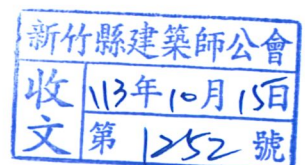 新竹縣建築師公會
收文
113年10月15日
第1252號